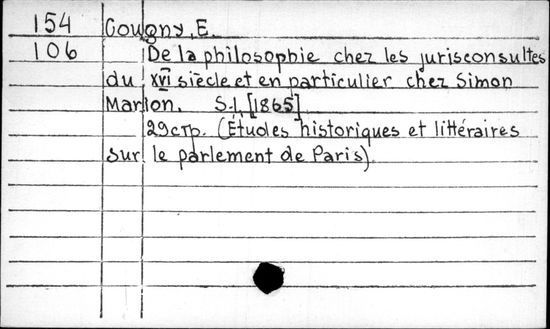 154 Cougny, E.
106 De la philosophie chez les jurisconsultes
du XVI siècle et en particulier chez Simon
Marion. S.l, [1865]
29стр. (Études historiques et littéraires
sur le parlement de Paris)